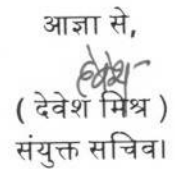 आज्ञा से,
देवेश
( देवेश मिश्र )
संयुक्त सचिव।